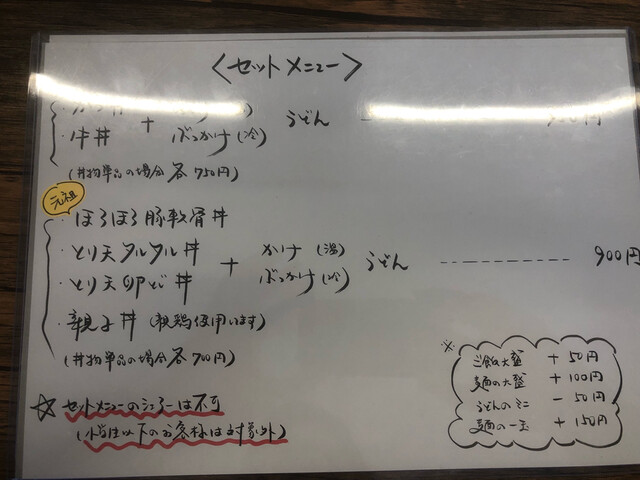 〈セットメニュー〉
・牛丼 + ぶっかけ(冷) うどん
(丼物単品の場合各750円)
元祖
・ほろほろ豚軟骨丼
・とり天タルタル丼 + かけ(温) うどん 900円
・とり天卵とじ丼 ぶっかけ(冷)
・親子丼 (親鶏使用います)
(丼物単品の場合各700円)
☆ セットメニューのシェアーは不可
(小学生以下のお客様は対象外)
※
ご飯大盛 + 50円
麺の大盛 + 100円
うどんのミニ − 50円
麺の一玉 + 150円